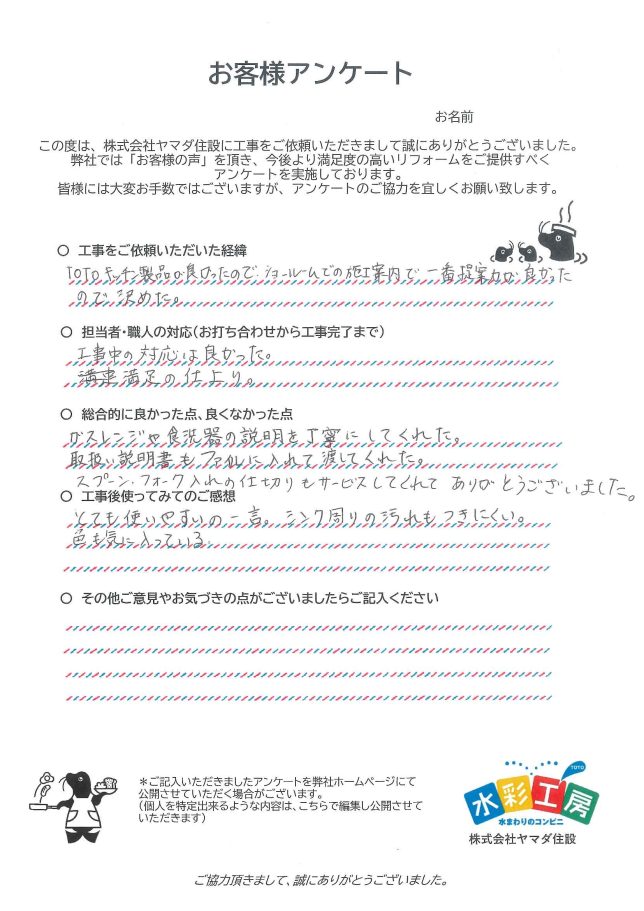 お客様アンケート
お名前
この度は、株式会社ヤマダ住設に工事をご依頼いただきまして誠にありがとうございました。
弊社では「お客様の声」を頂き、今後より満足度の高いリフォームをご提供すべく
アンケートを実施しております。
皆様には大変お手数ではございますが、アンケートのご協力を宜しくお願い致します。
○ 工事をご依頼いただいた経緯
TOTOキッチン製品が良かったので、ショールームでの施工案内で一番提案力が良かった
ので決めた。
○ 担当者・職人の対応(お打ち合わせから工事完了まで)
工事中の対応は良かった。
満足の仕上り。
○ 総合的に良かった点、良くなかった点
ガスレンジや食洗器の説明を丁寧にしてくれた。
取扱い説明書もファイルに入れて渡してくれた。
スプーン・フォーク入れの仕切りもサービスしてくれて ありがとうございました。
○ 工事後使ってみてのご感想
とても使いやすいの一言。シンク周りの汚れもつきにくい。
色も気に入っている。
○ その他ご意見やお気づきの点がございましたらご記入ください
＊ご記入いただきましたアンケートを弊社ホームページにて
公開させていただく場合がございます。
(個人を特定出来るような内容は、こちらで編集し公開させて
いただきます)
TOTO
水彩工房
水まわりのコンビニ
株式会社ヤマダ住設
ご協力頂きまして、誠にありがとうございました。